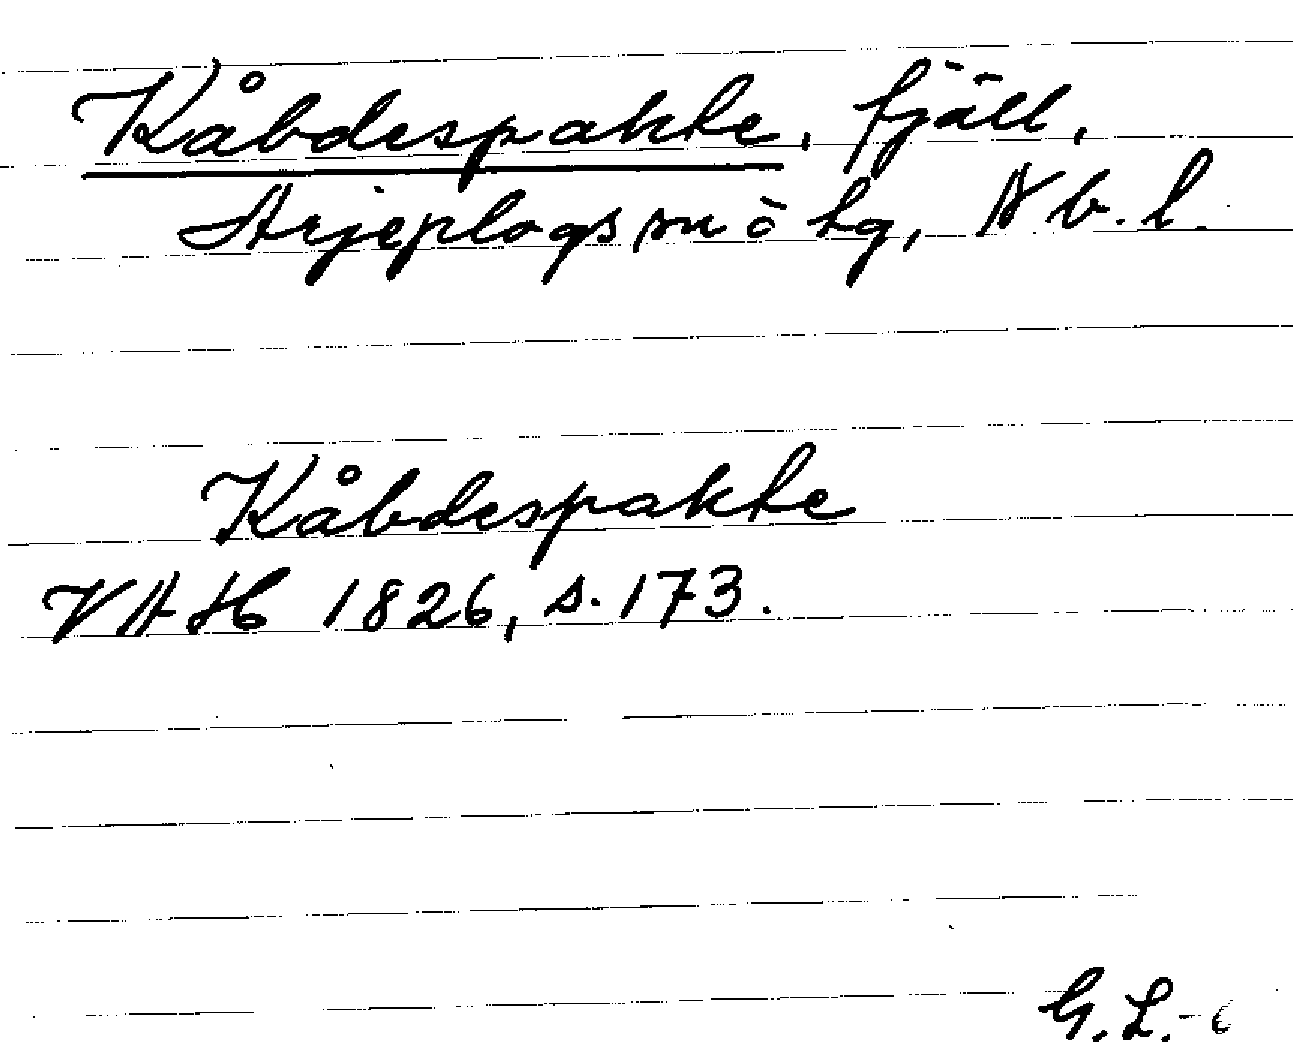 Kåbdespakte, fjäll,
Arjeplogs sn ö lg, Nb. l.
Kåbdespakte
VAH 1826, s. 173.
G. L.-